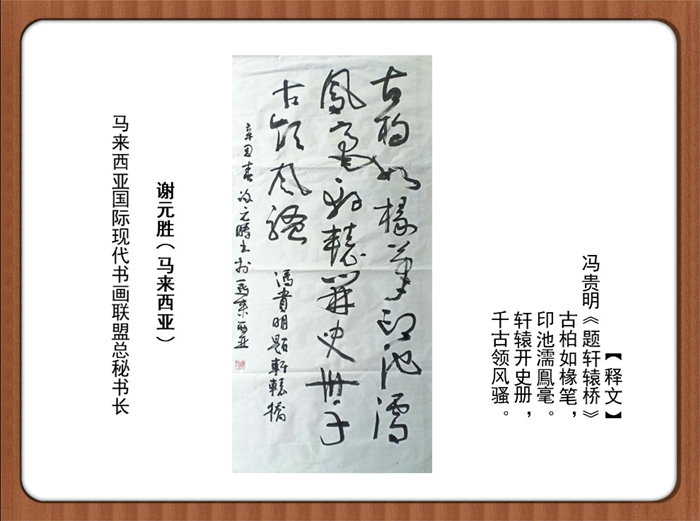 【释文】
冯贵明《题轩辕桥》
古柏如椽笔，
印池濡鳳毫。
轩辕开史册，
千古领风骚。
古柏如椽筆印池濡
鳳毫軒轅開史册千
古領风骚
馮貴明題軒轅橋
辛丑春谢元勝书於馬来西亚
谢元胜（马来西亚）
马来西亚国际现代书画联盟总秘书长